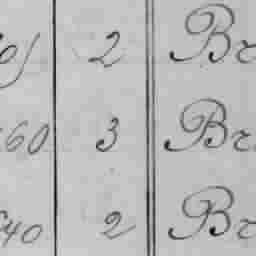 2 Br
60 3 Br
40 2 Br